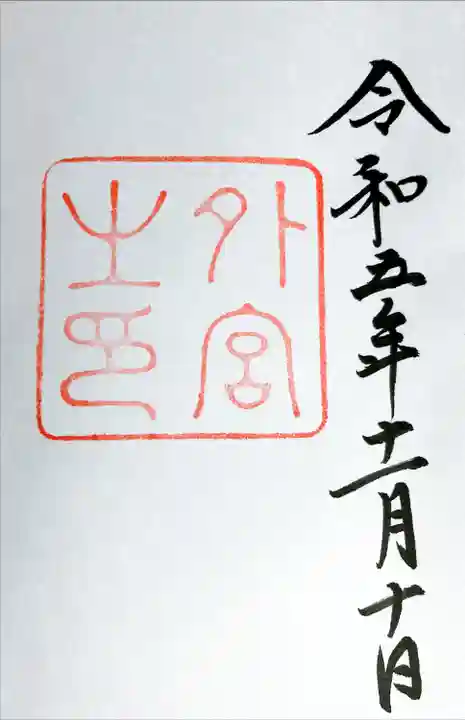 令和五年十一月十日
外宮
之印